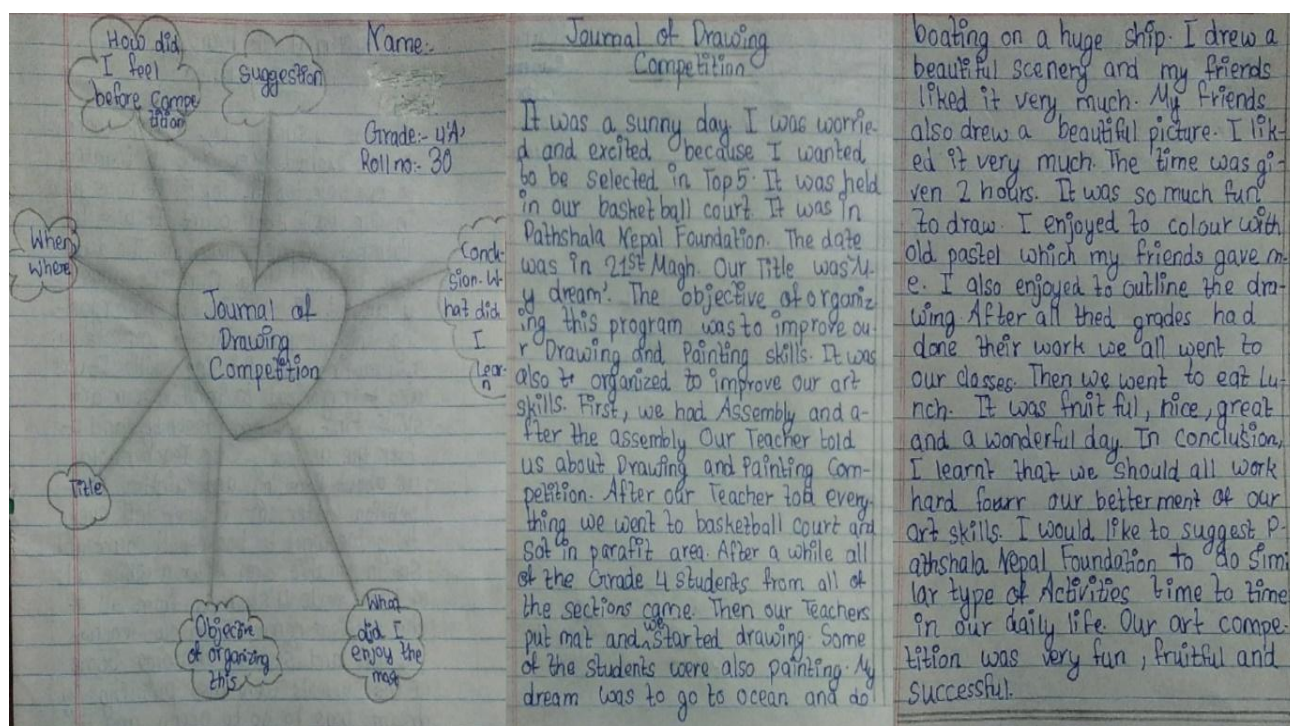 How did
I feel
before Compe
tition
Suggestion
Name:-
Grade:- 4'A'
Roll no:- 30
When
Where
Conclu-
sion. W-
hat did
I
lear-
n
Journal of
Drawing
Competition
Title
Objective
of organizing
this
What
did I
enjoy the
most
Journal of Drawing
Competition
It was a sunny day. I was worrie-
d and excited because I wanted
to be selected in Top 5. It was held
in our basketball court. It was in
Pathshala Nepal Foundation. The date
was in 21st Magh. Our Title was 'M-
y dream'. The objective of organiz
ing this program was to improve ou-
r Drawing and Painting skills. It was
also organized to improve our art
skills. First, we had Assembly and a-
fter the assembly Our Teacher told
us about Drawing and Painting Com-
petition. After our Teacher told every
thing we went to basketball court and
sat in parafit area. After a while all
of the Grade 4 students from all of
the sections came. Then our Teachers
put mat and we started drawing. Some
of the students were also painting. My
dream was to go to ocean and do
boating on a huge ship. I drew a
beautiful scenery and my friends
liked it very much. My friends
also drew a beautiful picture. I lik-
ed it very much. The time was gi-
ven 2 hours. It was so much fun
to draw. I enjoyed to colour with
old pastel which my friends gave m-
e. I also enjoyed to outline the dra-
wing. After all thed grades had
done their work we all went to
our classes. Then we went to eat lu-
nch. It was fruit ful, nice, great
and a wonderful day. In conclusion,
I learnt that we should all work
hard fourr our betterment of our
art skills. I would like to suggest P-
athshala Nepal Foundation to do simi
lar type of Activities time to time
in our daily life. Our art compe-
tition was very fun, fruitful and
successful.